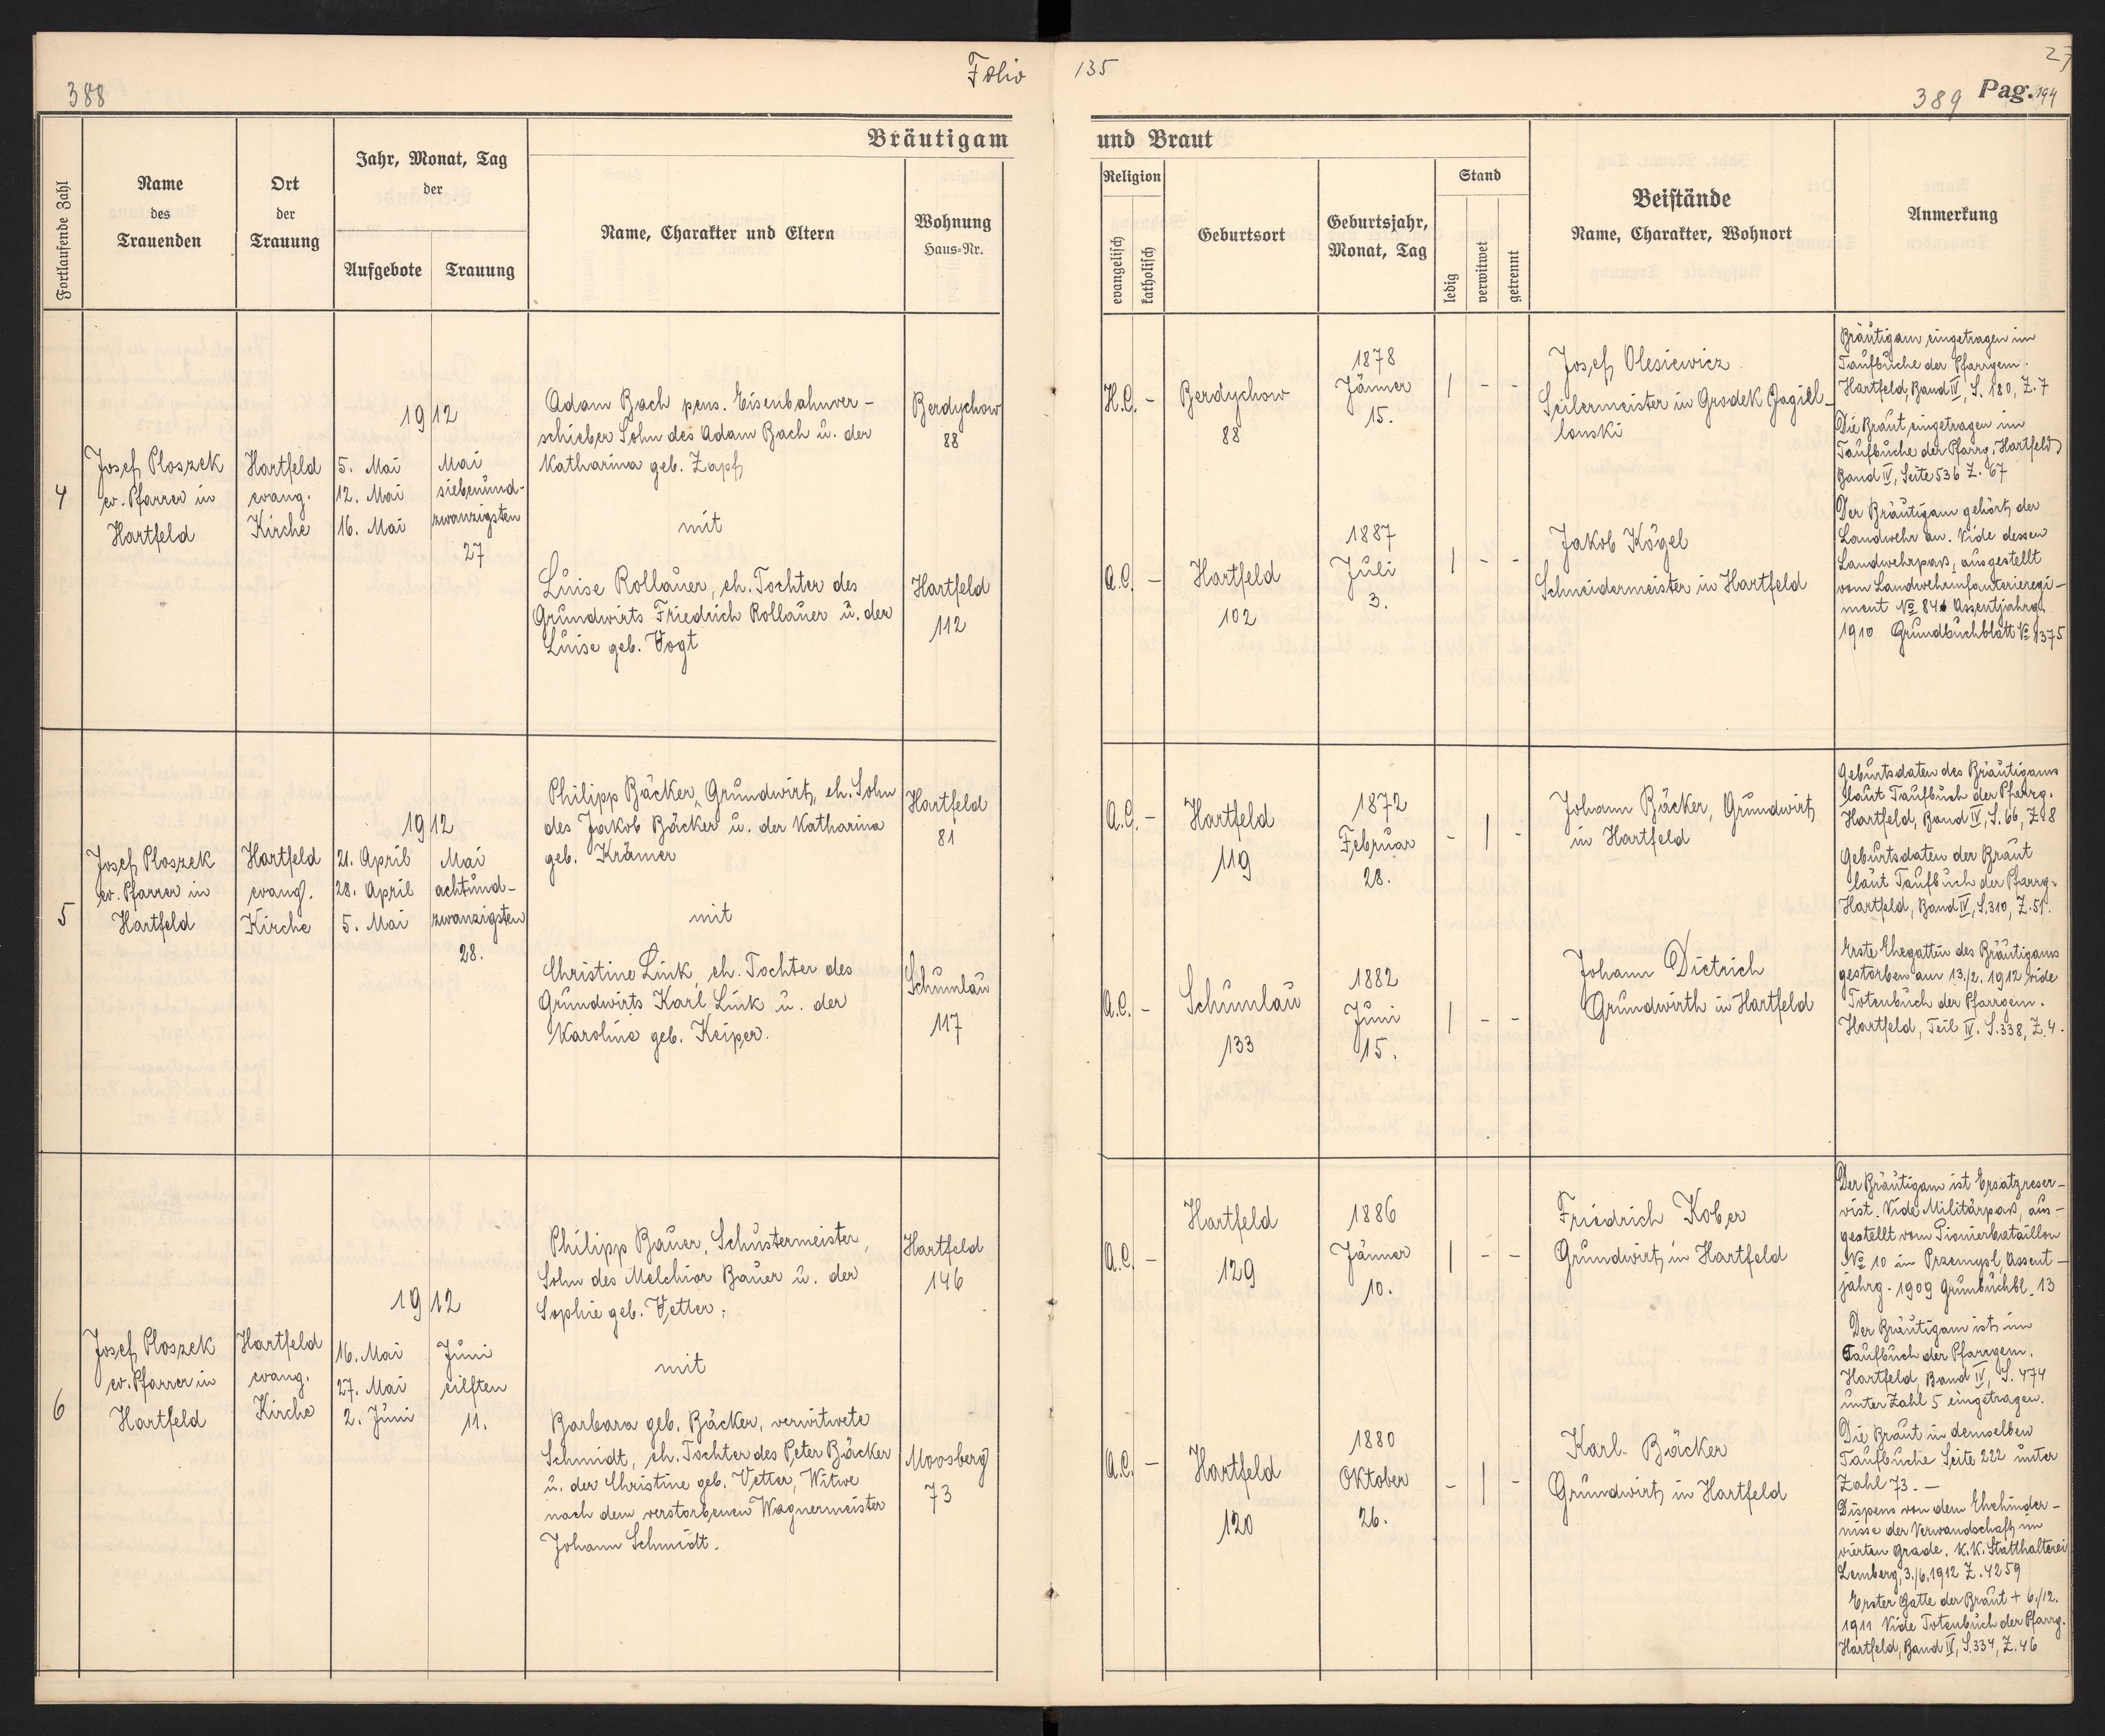 388
Folio
135
27
389 Pag. 194
Bräutigam
und Braut
Fortlaufende Zahl
Name
des
Trauenden
Ort
der
Trauung
Jahr, Monat, Tag
der
Aufgebote
Trauung
Name, Charakter und Eltern
Wohnung
Haus-Nr.
Religion
evangelisch
katholisch
Geburtsort
Geburtsjahr,
Monat, Tag
Stand
ledig
verwitwet
getrennt
Beistände
Name, Charakter, Wohnort
Anmerkung
4
Josef Ploszek
ev. Pfarrer in
Hartfeld
Hartfeld
evang.
Kirche
1912
5. Mai
12. Mai
16. Mai
Mai
siebenund-
zwanzigsten
27
Adam Bach pens. Eisenbahnver-
schieber Sohn des Adam Bach u. der
Katharina geb. Zapf
mit
Luise Rollauer, eh. Tochter des
Grundwirts Friedrich Rollauer u. der
Luise geb. Vogt
Berdychow
88
Hartfeld
112
H.C. -
A.C. -
Berdychow
88
Hartfeld
102
1878
Jänner
15.
1887
Juli
3.
| - -
| - -
Josef Olesiewicz
Seilermeister in Grodek Jagiel-
lonski
Jakob Kögel
Schneidermeister in Hartfeld
Bräutigam eingetragen im
Taufbuche der Pfarrgem.
Hartfeld, Band IV, S. 180, Z. 7
Die Braut eingetragen im
Taufbuche der Pfarrg. Hartfeld,
Band IV, Seite 536 Z. 67
Der Bräutigam gehört der
Landwehr an. Vide dessen
Landwehrpass, ausgestellt
vom Landwehrinfanterieregi-
ment № 84 Assentjahrg.
1910 Grundbuchblatt № 1375
5
Josef Ploszek
ev. Pfarrer in
Hartfeld
Hartfeld
evang.
Kirche
1912
21. April
28. April
5. Mai
Mai
achtund-
zwanzigsten
28.
Philipp Bäcker, Grundwirt, eh. Sohn
des Jakob Bäcker u. der Katharina
geb. Krämer
mit
Christine Link, eh. Tochter des
Grundwirts Karl Link u. der
Karoline geb. Keiper.
Hartfeld
81
Schumlau
117
A.C. -
A.C. -
Hartfeld
119
Schumlau
133
1872
Februar
28.
1882
Juni
15.
- | -
| - -
Johann Bäcker, Grundwirt
in Hartfeld
Johann Dietrich
Grundwirth in Hartfeld
Geburtsdaten des Bräutigams
laut Taufbuch der Pfarrg.
Hartfeld, Band IV, S. 66, Z. 8
Geburtsdaten der Braut
laut Taufbuch der Pfarrg.
Hartfeld, Band IV, S. 310, Z. 51.
Erste Ehegattin des Bräutigams
gestorben am 13./2. 1912 vide
Totenbuch der Pfarrgem.
Hartfeld, Teil IV. S. 338, Z. 4.
6
Josef Ploszek
ev. Pfarrer in
Hartfeld
Hartfeld
evang.
Kirche
1912
16. Mai
27. Mai
2. Juni
Juni
eilften
11.
Philipp Bauer, Schustermeister,
Sohn des Melchior Bauer u. der
Sophie geb. Vetter;
mit
Barbara geb. Bäcker, verwitwete
Schmidt, eh. Tochter des Peter Bäcker
u. der Christine geb. Vetter, Witwe
nach dem verstorbenen Wagnermeister
Johann Schmidt.
Hartfeld
146
Moosberg
73
A.C. -
A.C. -
Hartfeld
129
Hartfeld
120
1886
Jänner
10.
1880
Oktober
26.
| - -
- | -
Friedrich Kober
Grundwirt, in Hartfeld
Karl Bäcker
Grundwirt, in Hartfeld
Der Bräutigam ist Ersatzreser-
vist. Vide Militärpass, aus-
gestellt vom Pionierbataillon
№ 10 in Przemysl, Assent-
jahrg. 1909 Grunbuchbl. 13
Der Bräutigam ist im
Taufbuch der Pfarrgem.
Hartfeld, Band IV, S. 474
unter Zahl 5 eingetragen.
Die Braut in demselben
Taufbuche Seite 222 unter
Zahl 73. -
Dispens von dem Ehehinder-
nisse der Verwandschaft im
vierten Grade. K.K. Statthalterei
Lemberg, 3./6. 1912 Z. 4259
Erster Gatte der Braut + 6./12.
1911 Vide Totenbuch der Pfarrg.
Hartfeld, Band IV, S. 334, Z. 46